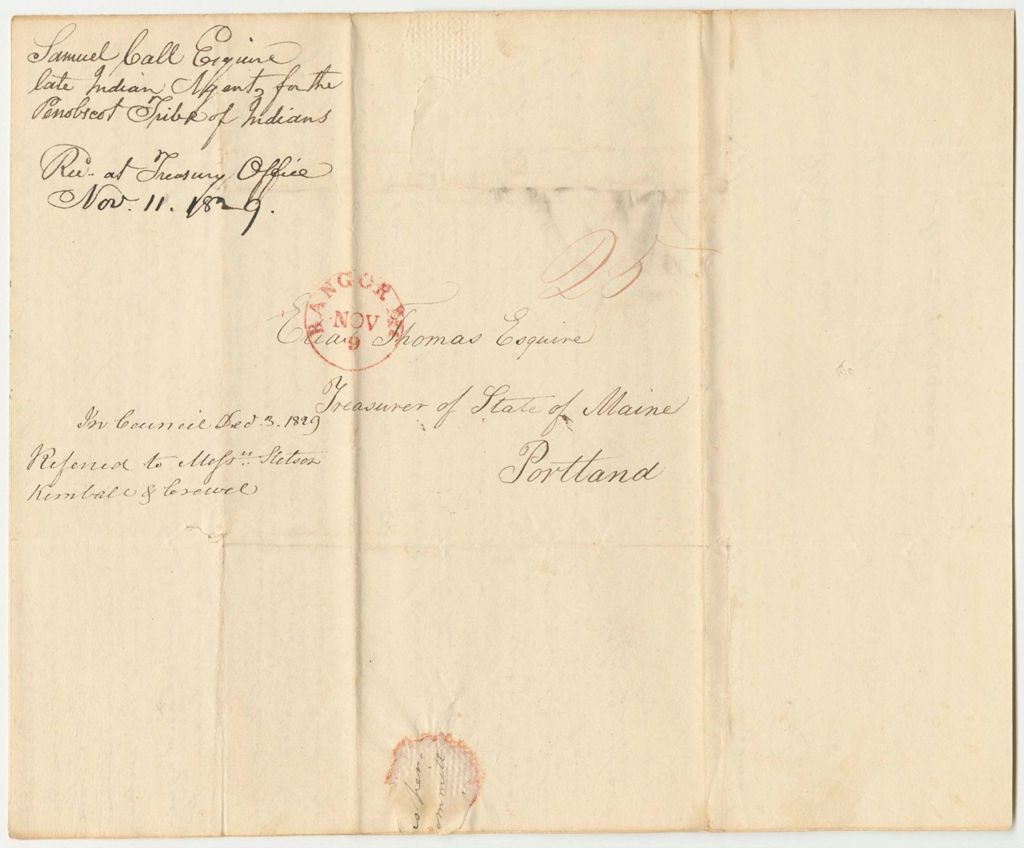 Samuel Call Esquire
late Indian Agent, for the
Penobscot Tribe of Indians
Rec. at Treasury Office
Nov. 11. 1829.
25
BANGOR ME
NOV
9
Elias Thomas Esquire
Treasurer of State of Maine
Portland
In Council Dec. 3. 1829
Referred to Messrs. Stetson
Kimball & Crowel